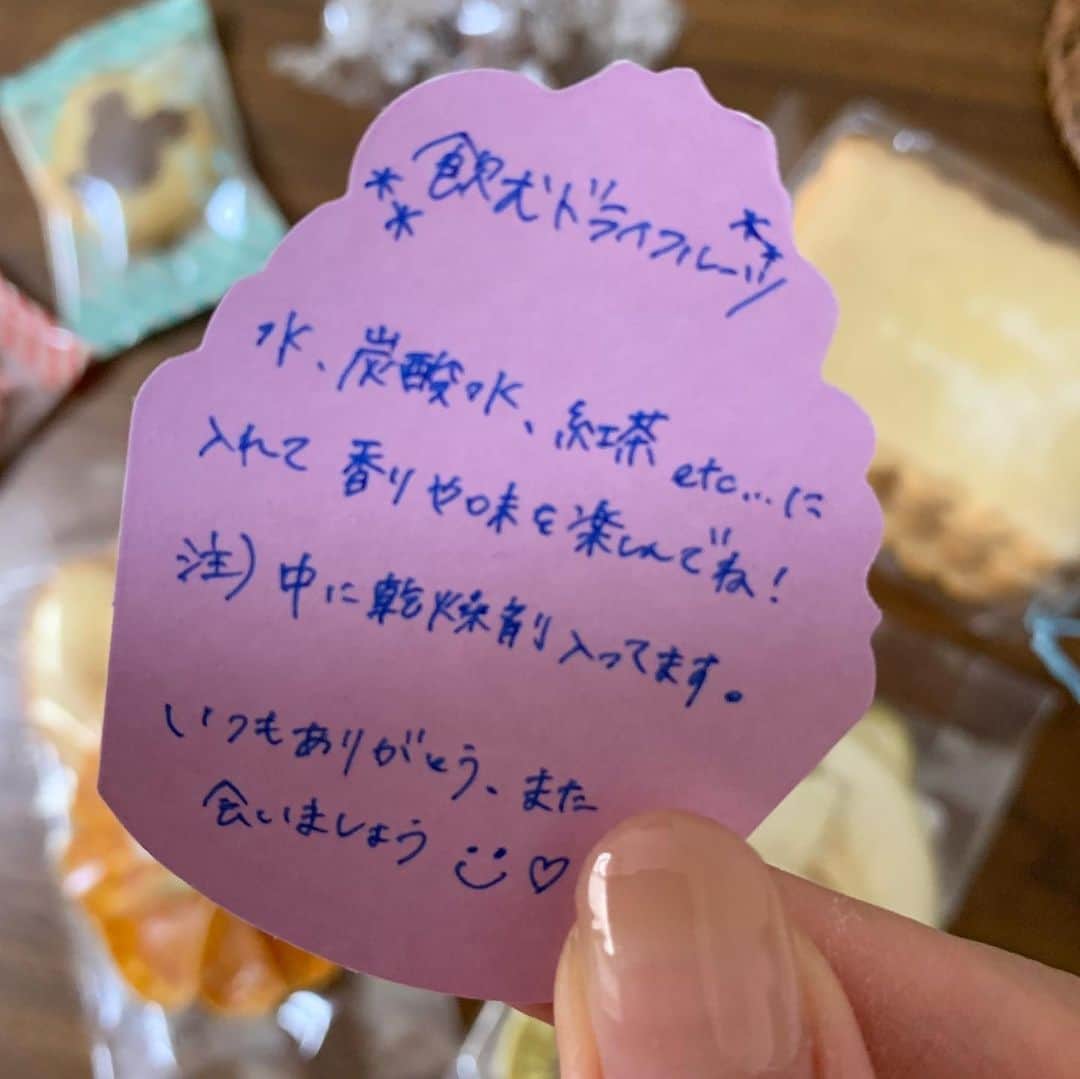 飲むドライフルーツ
水、炭酸水、紅茶 etc...に
入れて 香りや味を楽しんでね!
注) 中に乾燥剤入ってます。
いつもありがとう、また
会いましょう